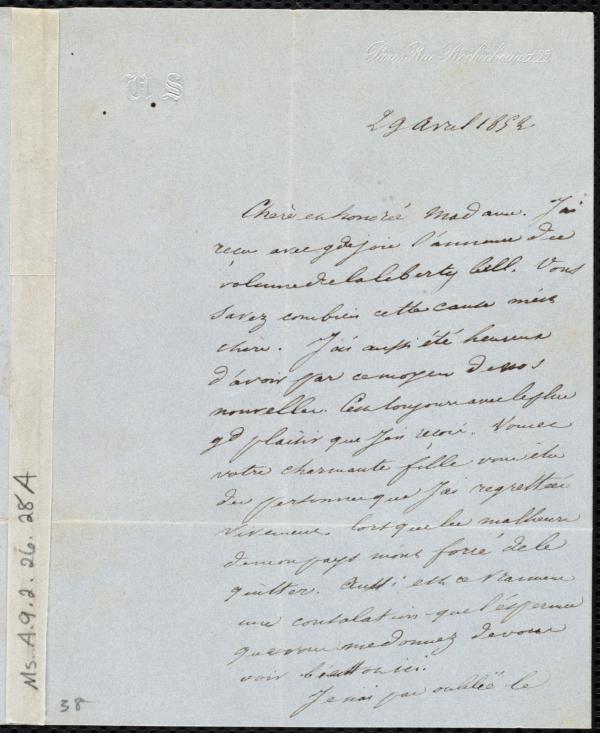 Paris, Rue Rochechouart 22
V S
29 avril 1852
Chere et honorée Madame. J'ai
recu avec gde joie l'annonce du
volume de la liberty bell. Vous
savez combien cette cause m'est
chere. J'ai aussi été heureux
d'avoir par ce moyen de vos
nouvelles. C'est toujours avec le plus
gd plaisir que j'en recois. Vous et
votre charmante fille vous êtes
des personnes que j'ai regrettées
vivement lorsque les malheurs
de mon pays m'ont forcé de le
quitter. Aussi est ce vraiment
une consolation que l'espérance
que vous me donnez de vous
voir bientot ici.
Je n'ai pas oublié le
Ms. A.9.2.26.28A
38